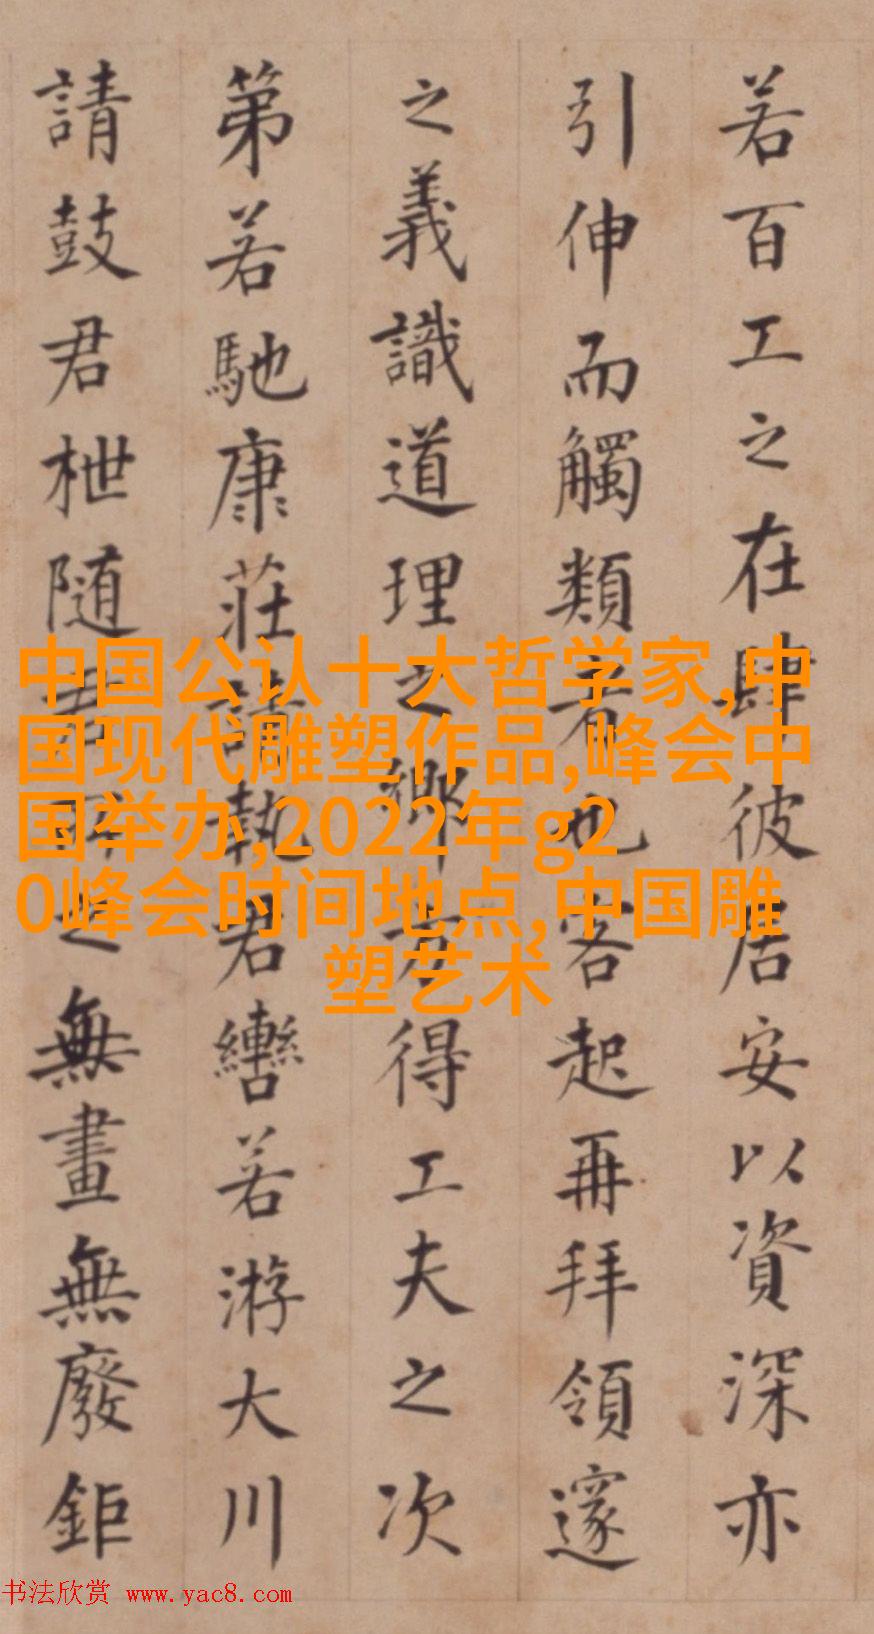 若百工之在肆彼居安以資深亦
引伸而觸類者也客起再拜領邃
之義識道理之鄉方得工夫之次
第若馳康莊請執君轡若游大川
請鼓君枻随君所之無畫無廢鉅
中国公认十大哲学家,中
国现代雕塑作品,峰会中
国举办,2022年g2
0峰会时间地点,中国雕
塑艺术
书法欣赏 www.yac8.com